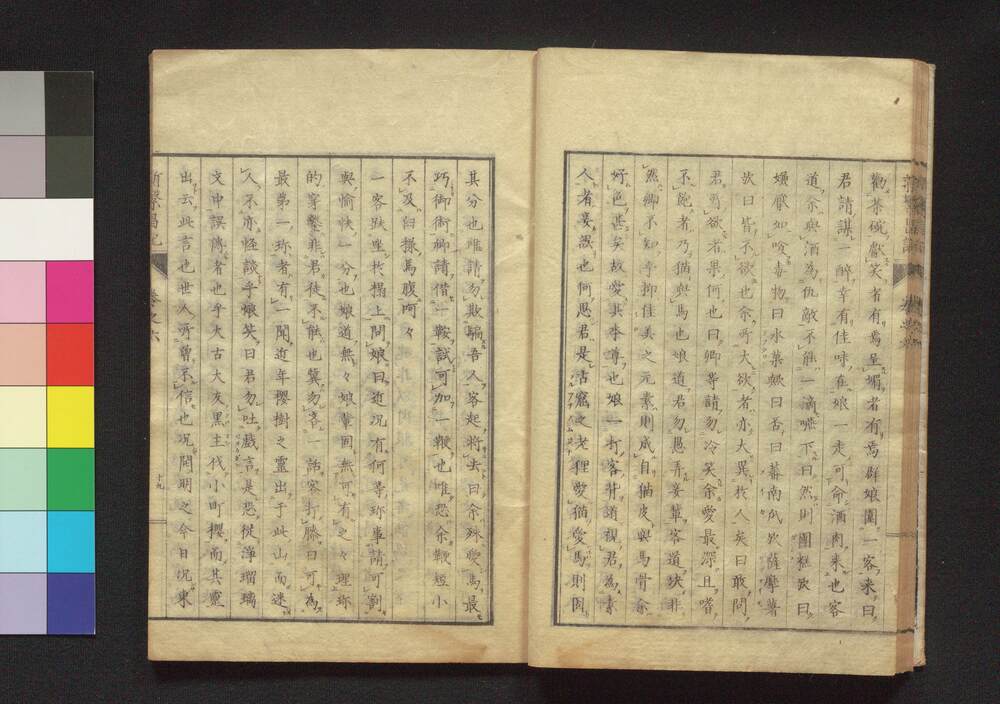 勸茶碗獻笑者有焉呈媚者有焉群娘圍一客来曰
君請謀一醉幸有佳味在娘一走可命酒肉来也客
道余與酒為仇敵不能一滴嚥下曰然則團粢歟曰
嫌厭如啗毒物曰水菓歟曰否曰蕃南瓜歟薩摩薯
歟曰皆不欲也余所大欲者亦大異我人矣曰敢問
君所欲者果何也曰卿等請勿冷笑余愛最深且嗜
不飽者乃猫與馬也娘道君勿愚弄妾輩客道決非
然卿不知乎抑佳美之元素則成自猫皮與馬骨余
好色甚矣故愛其本尊也娘一打客背道視君為素
人者妾誤也何思君是古窟之老狸愛猫愛馬則固
其分也唯請勿欺騙吾人客起将去曰余殊愛馬最
巧御術卿請借一鞍試可加一鞭也唯恐余鞭短小
不及白馬腹呵々
一客趺坐於榻上問娘曰近况有何等珎事請可劃
與愉快一分也娘道無々娘輩固無可有之々理珎
的穿鑿非君徒不能也冀勿吝一話客打膝曰可為
最第一珎者有一聞近年櫻樹之靈出于此山而迷
人不亦怪談乎娘笑曰君勿吐戲言是恐從淨瑠璃
文中誤傳者也乎大古大友黒主代小町櫻而其靈
出云此言也世人所曾不信也况開明之今日况東
十九